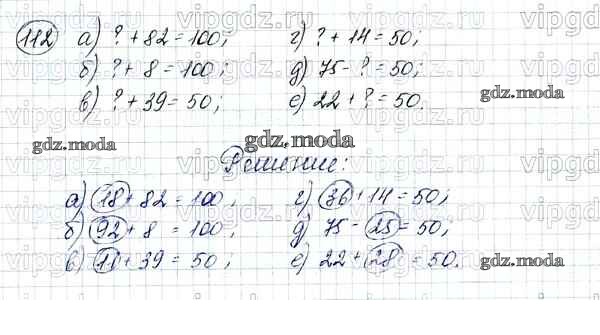 112 а) ? + 82 = 100; г) ? + 14 = 50;
б) ? + 8 = 100; д) 75 - ? = 50;
в) ? + 39 = 50; е) 22 + ? = 50.
gdz.moda
gdz.moda
gdz.moda
Решение:
а) 18 + 82 = 100; г) 36 + 14 = 50;
б) 92 + 8 = 100; д) 75 - 25 = 50;
в) 11 + 39 = 50; е) 22 + 28 = 50.
gdz.moda
vipgdz.ru